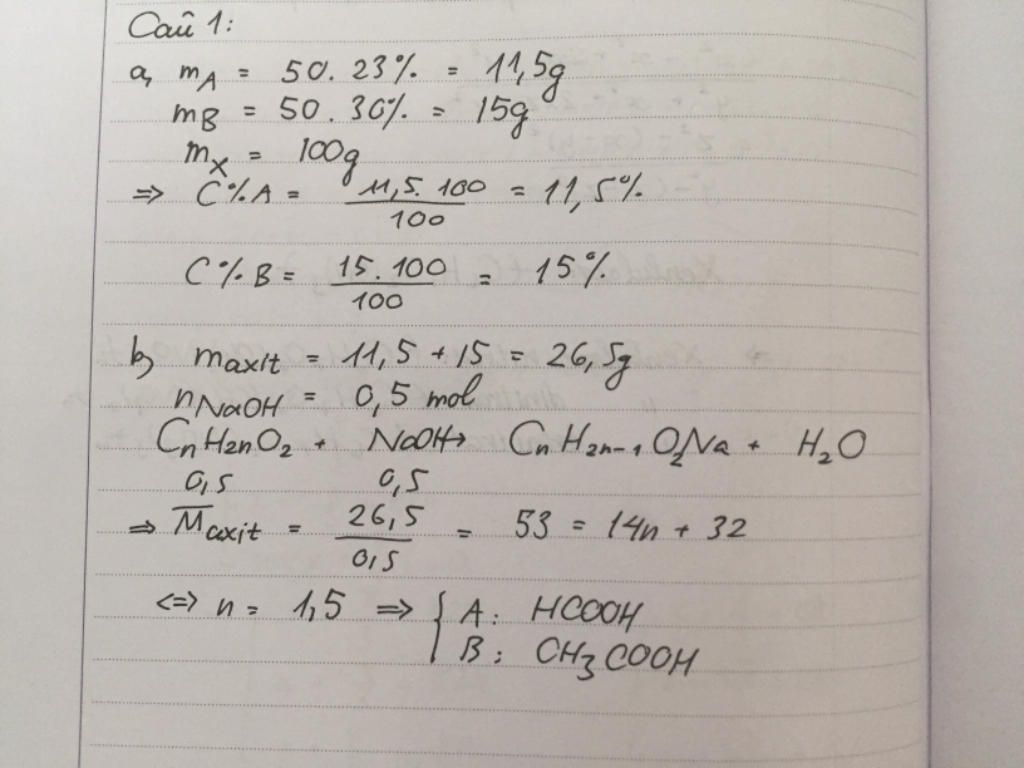 Câu 1:
a, mA = 50 . 23% = 11,5g
mB = 50 . 30% = 15g
mX = 100g
=> C%A = 11,5 . 100 / 100 = 11,5%
C%B = 15 . 100 / 100 = 15%
b, maxit = 11,5 + 15 = 26,5g
nNaOH = 0,5 mol
CnH2nO2 + NaOH → CnH2n-1O2Na + H2O
0,5 0,5
=> M̅axit = 26,5 / 0,5 = 53 = 14n + 32
<=> n = 1,5 => { A : HCOOH
B : CH3COOH